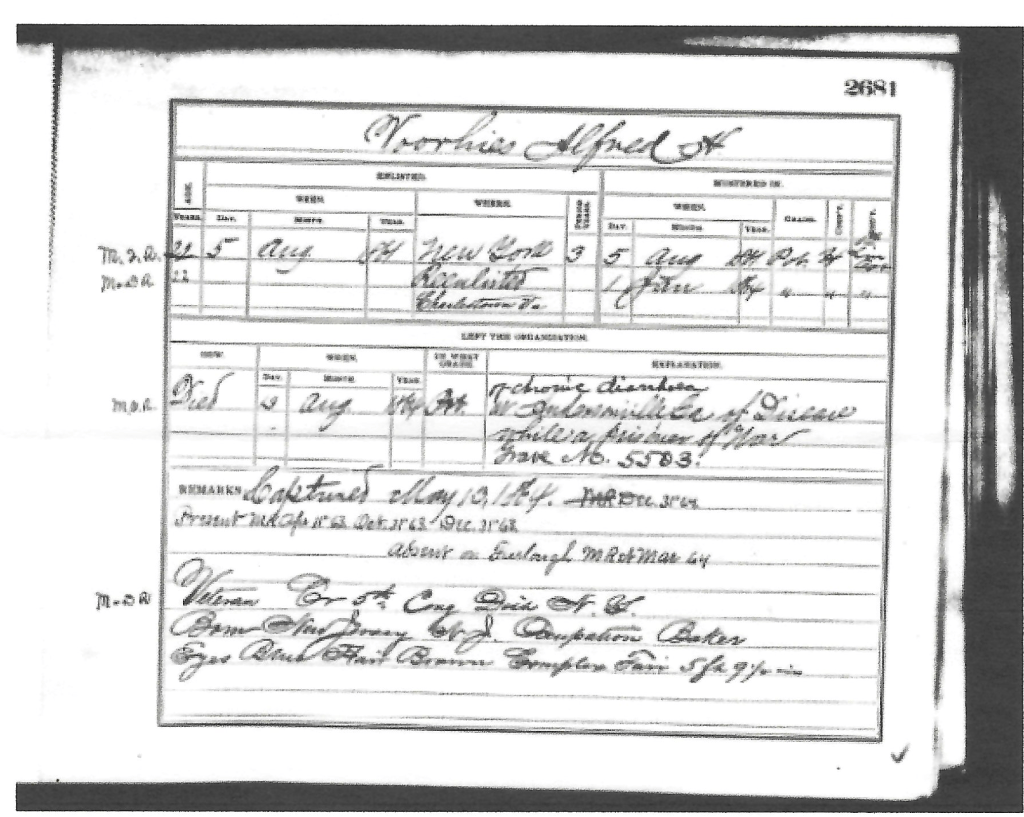 2681
Voorhies Alfred H
ENLISTED. MUSTERED IN.
AGE. WHEN. WHERE. PERIOD YEARS. WHEN. GRADE. COMP'Y. REG'T.
YEARS. DAY. MONTH. YEAR. DAY. MONTH. YEAR.
5 Aug New York 3 5 Aug
M.D.R. 22 Reenlisted 1 Jan 64 " " "
Charlestown Va
LEFT THE ORGANIZATION.
HOW. WHEN. IN WHAT GRADE. EXPLANATION.
DAY. MONTH. YEAR.
of chronic diarrhoea
M.D.R. Died Aug at Andersonville Ga of Disease
while a prisoner of War
Grave No. 5503.
REMARKS Captured May 1864. M R Dec. 31 64
Present M R 63. Oct. 31 63 Dec. 31 63
absent on Furlough M R Mar 64
M.D.R. Veteran Cr 5th Cong Dist N.Y.
Born New Jersey N.J. Occupation Baker
Eyes Blue Hair Brown Complex Fair 5 ft 9 in